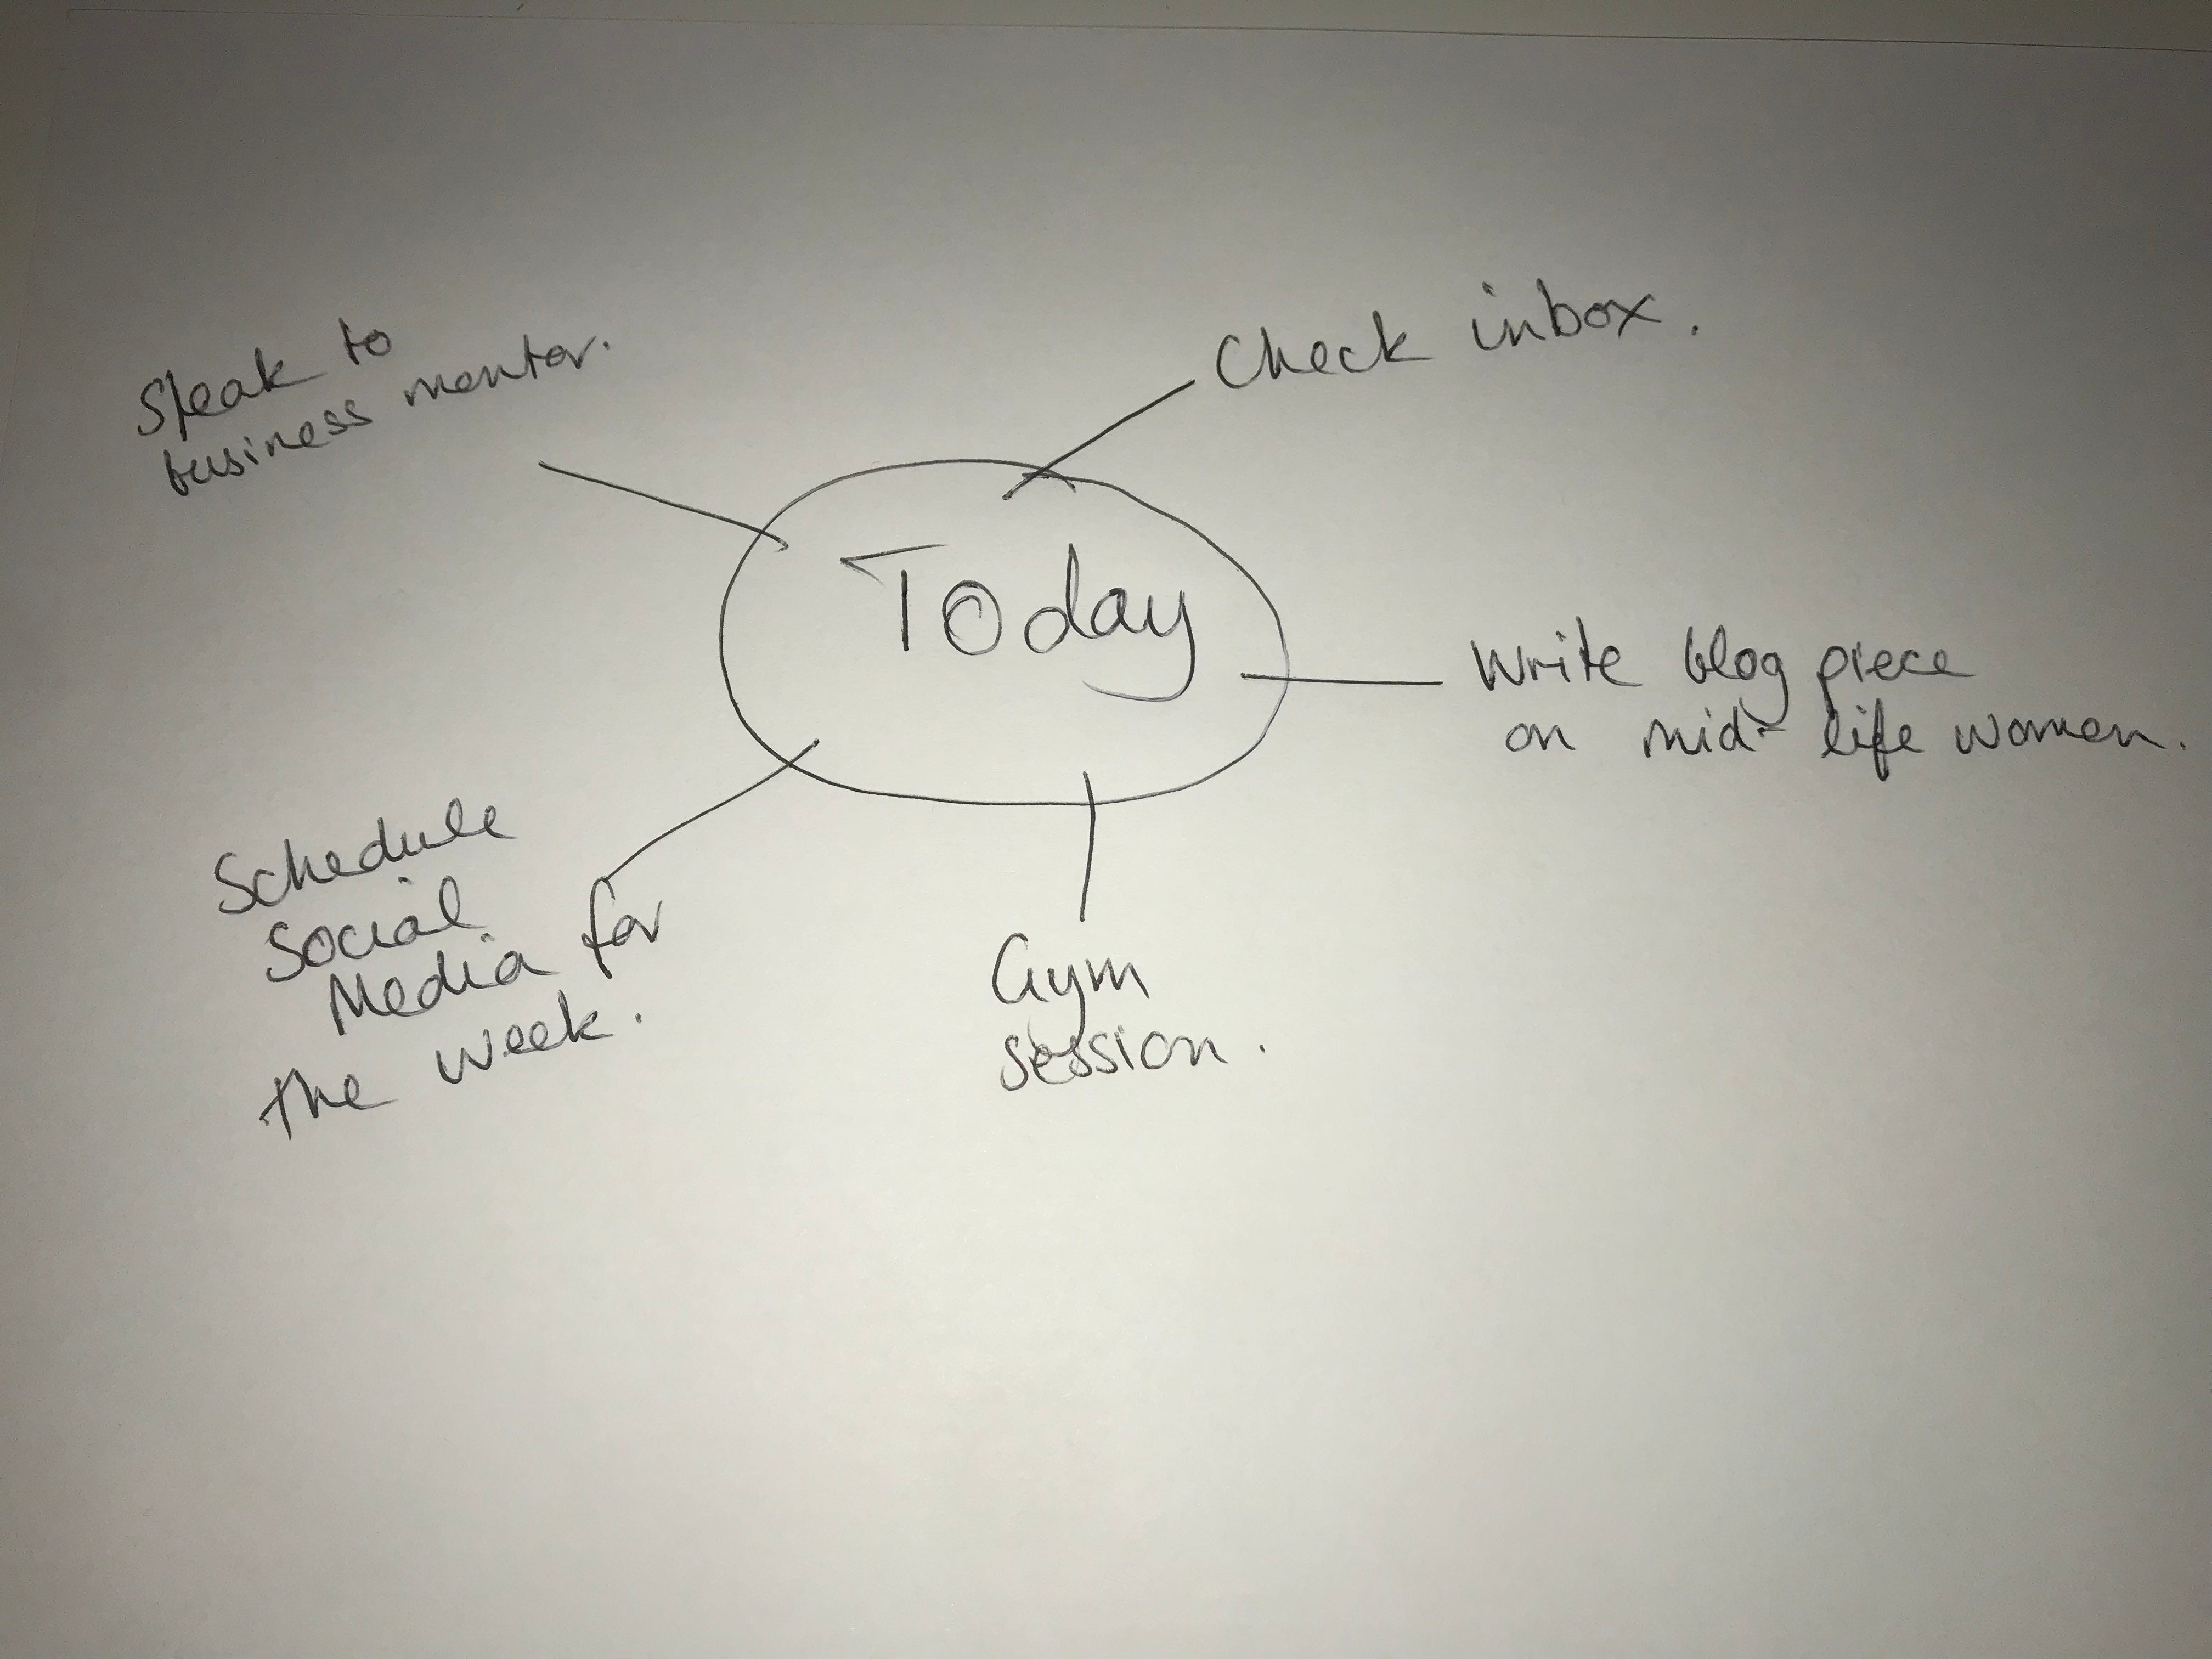 Today
Check inbox.
Write blog piece
on mid-life women.
Gym
session.
Schedule
Social
Media for
the week.
Speak to
business mentor.